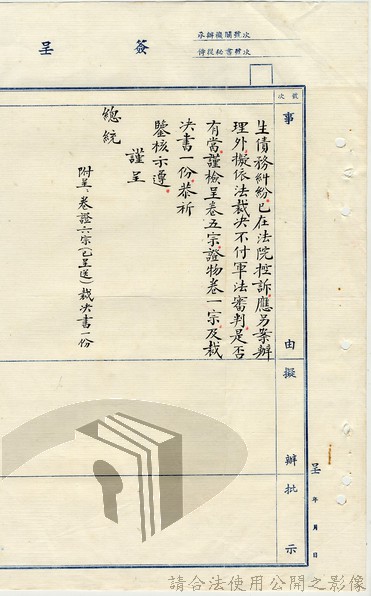 簽呈
承辦機關號次
侍從秘書號次
號次
事由
擬辦
批示
呈 年 月 日
生債務糾紛已在法院控訴應另案辦
理外擬依法裁決不付軍法審判是否
有當謹檢呈卷五宗證物卷一宗及裁
決書一份恭祈
鑒核示遵
謹呈
總統
附呈、卷證六宗(已呈送)裁決書一份
請合法使用公開之影像